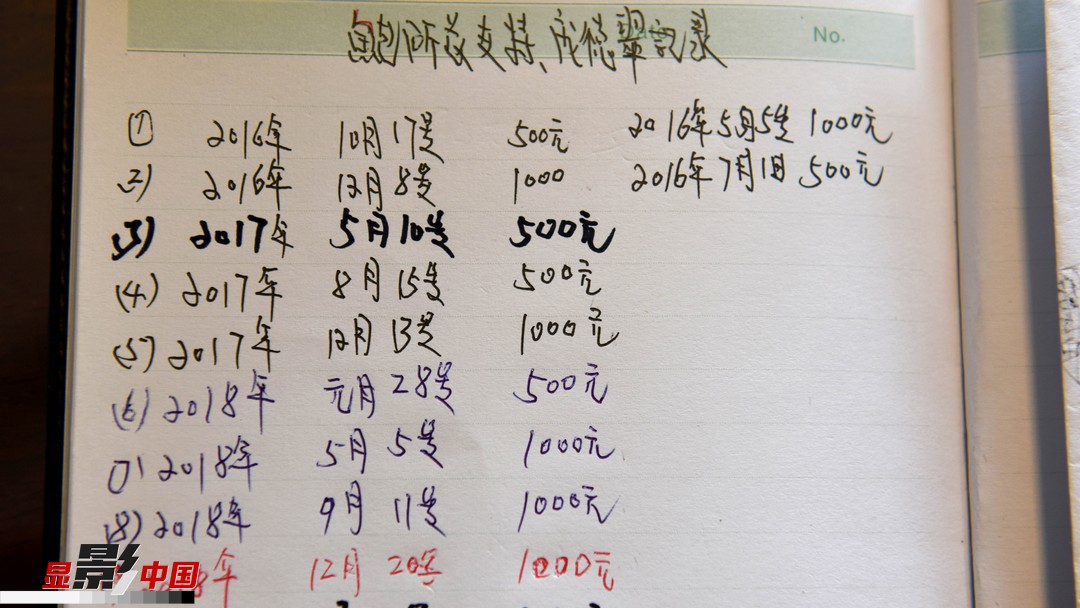 鲍所长支持、庞德翠记录
No.
① 2016年 10月17号 500元 2016年5月5号 1000元
2) 2016年 12月8号 1000 2016年7月1日 500元
(3) 2017年 5月10号 500元
(4) 2017年 8月15号 500元
(5) 2017年 12月13号 1000元
(6) 2018年 元月28号 500元
(7) 2018年 5月5号 1000元
(8) 2018年 9月11号 1000元
8年 12月20号 1000元
显影中国